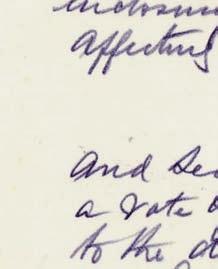 affecting
and Se
a vote
to the d